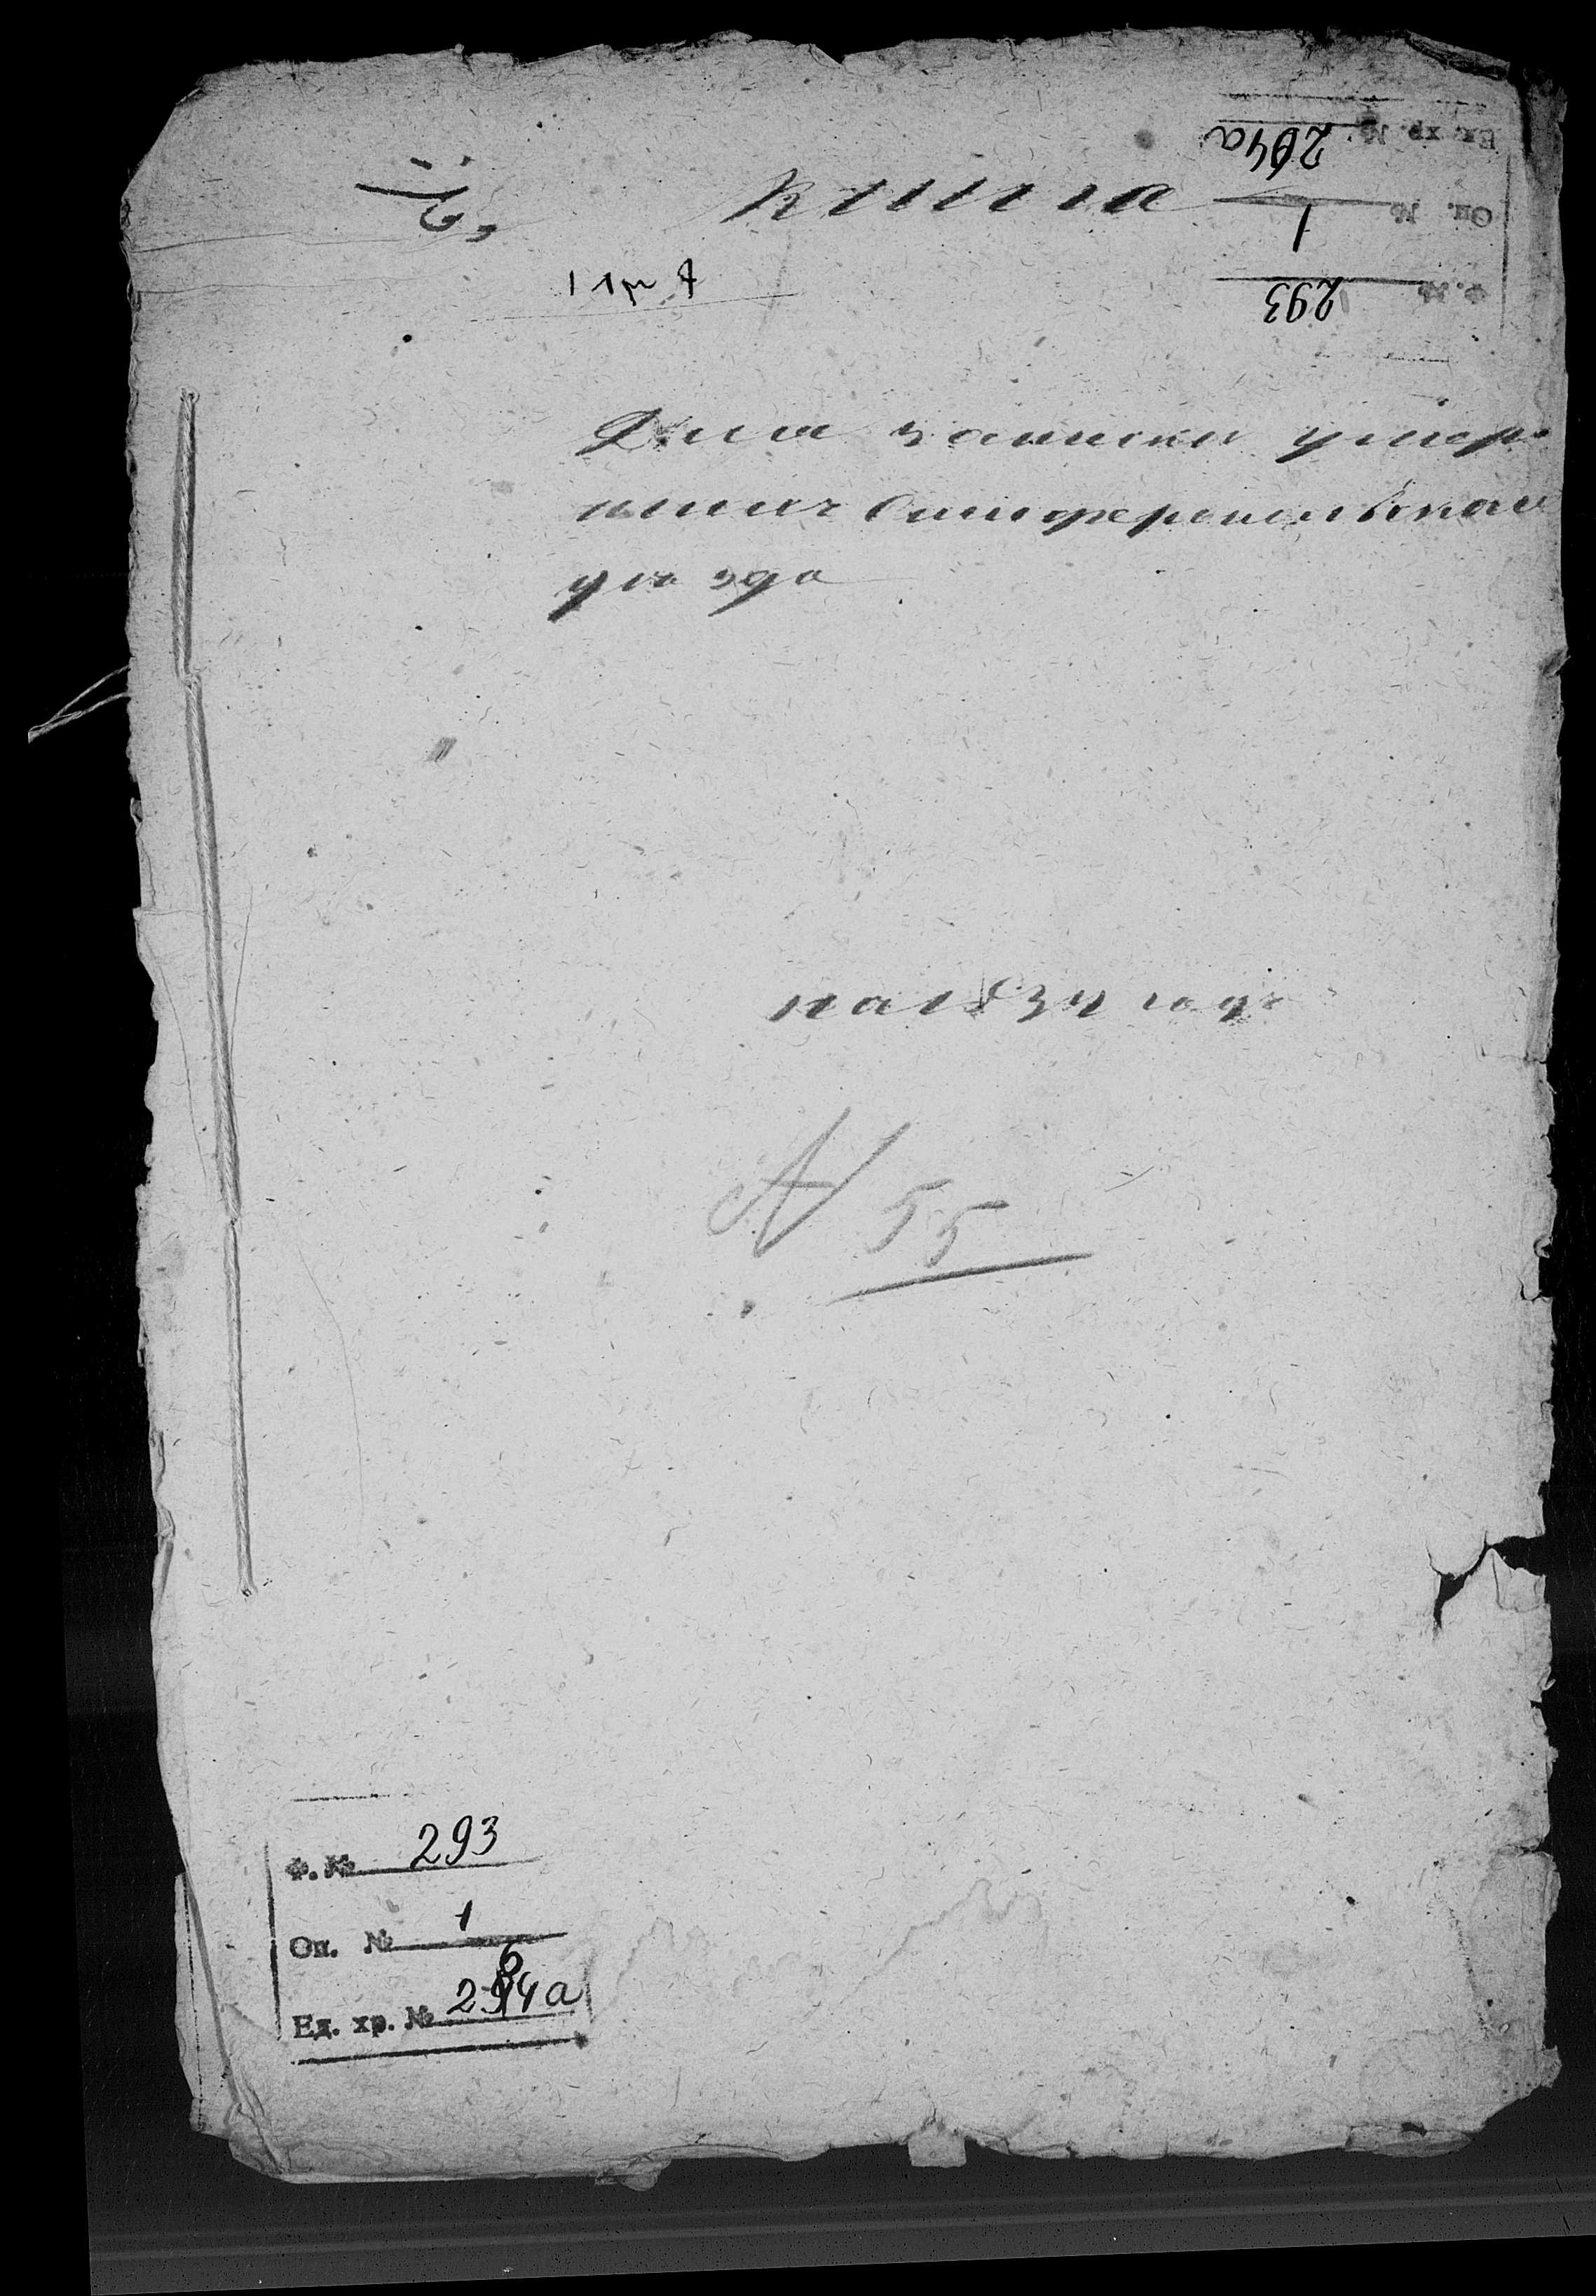 книга
Для записки умер
ших Симферопольскаго
уезда
на 1834 годъ
№ 55
Ф. № 293
Оп. № 1
Ед. хр. № 264а
Ф. № 293
Оп. № 1
Ед. хр. № 264а